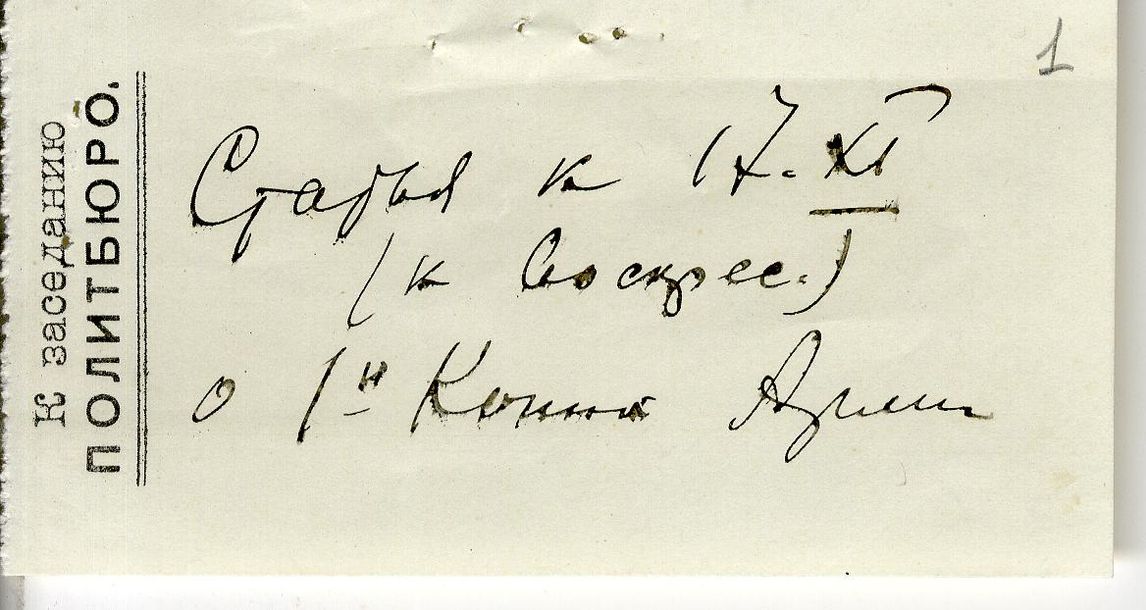 К заседанию
ПОЛИТБЮРО.
1
Статья к 17.XI
(к Воскрес.)
о 1й Конной Армии